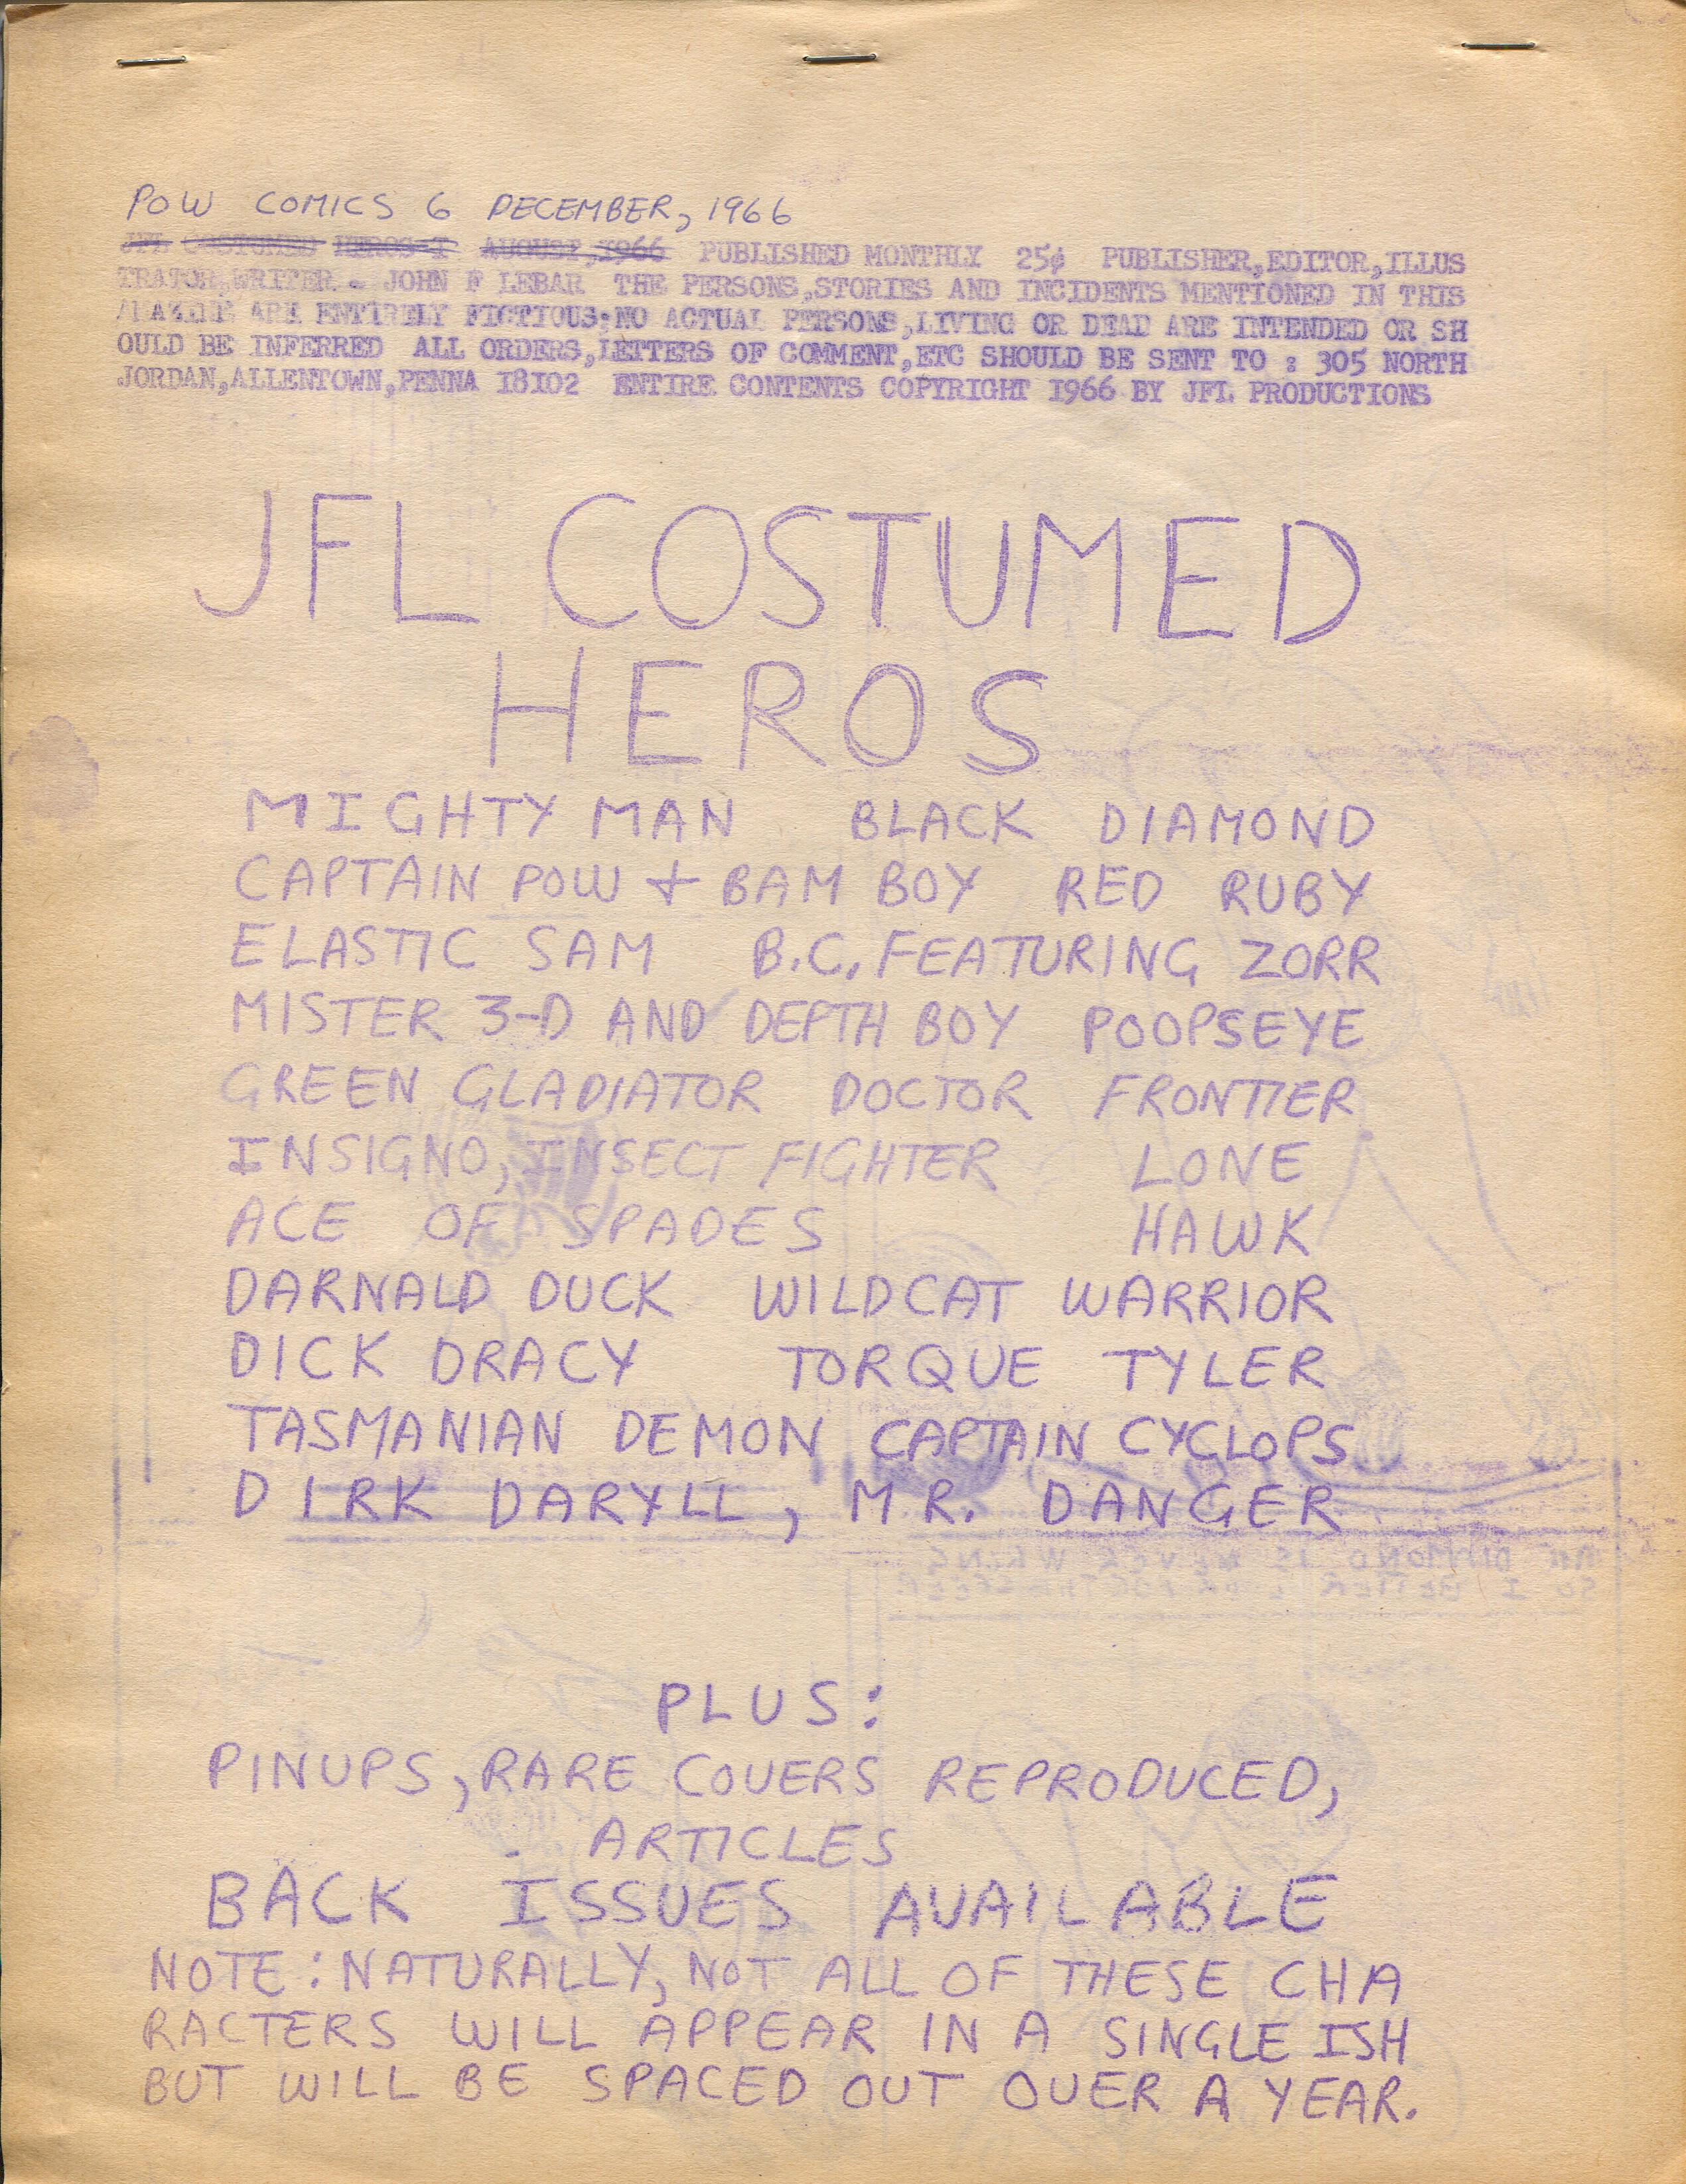 POW COMICS 6 DECEMBER, 1966
JFL COSTUMED HEROS-I AUGUST,1966 PUBLISHED MONTHLY 25¢ PUBLISHER,EDITOR,ILLUS
TRATOR,WRITER - JOHN F LEBAR THE PERSONS,STORIES AND INCIDENTS MENTIONED IN THIS
MAGAZINE ARE ENTIRELY FICTIOUS;NO ACTUAL PERSONS,LIVING OR DEAD ARE INTENDED OR SH
OULD BE INFERRED ALL ORDERS,LETTERS OF COMMENT,ETC SHOULD BE SENT TO : 305 NORTH
JORDAN,ALLENTOWN,PENNA 18102 ENTIRE CONTENTS COPYRIGHT 1966 BY JFL PRODUCTIONS
JFL COSTUMED
HEROS
MIGHTY MAN BLACK DIAMOND
CAPTAIN POW + BAM BOY RED RUBY
ELASTIC SAM B.C. FEATURING ZORR
MISTER 3-D AND DEPTH BOY POOPSEYE
GREEN GLADIATOR DOCTOR FRONTIER
INSIGNO, INSECT FIGHTER LONE
ACE OF SPADES HAWK
DARNALD DUCK WILDCAT WARRIOR
DICK DRACY TORQUE TYLER
TASMANIAN DEMON CAPTAIN CYCLOPS
DIRK DARYLL, MR. DANGER
PLUS:
PINUPS, RARE COVERS REPRODUCED,
ARTICLES
BACK ISSUES AVAILABLE
NOTE: NATURALLY, NOT ALL OF THESE CHA
RACTERS WILL APPEAR IN A SINGLE ISH
BUT WILL BE SPACED OUT OVER A YEAR.